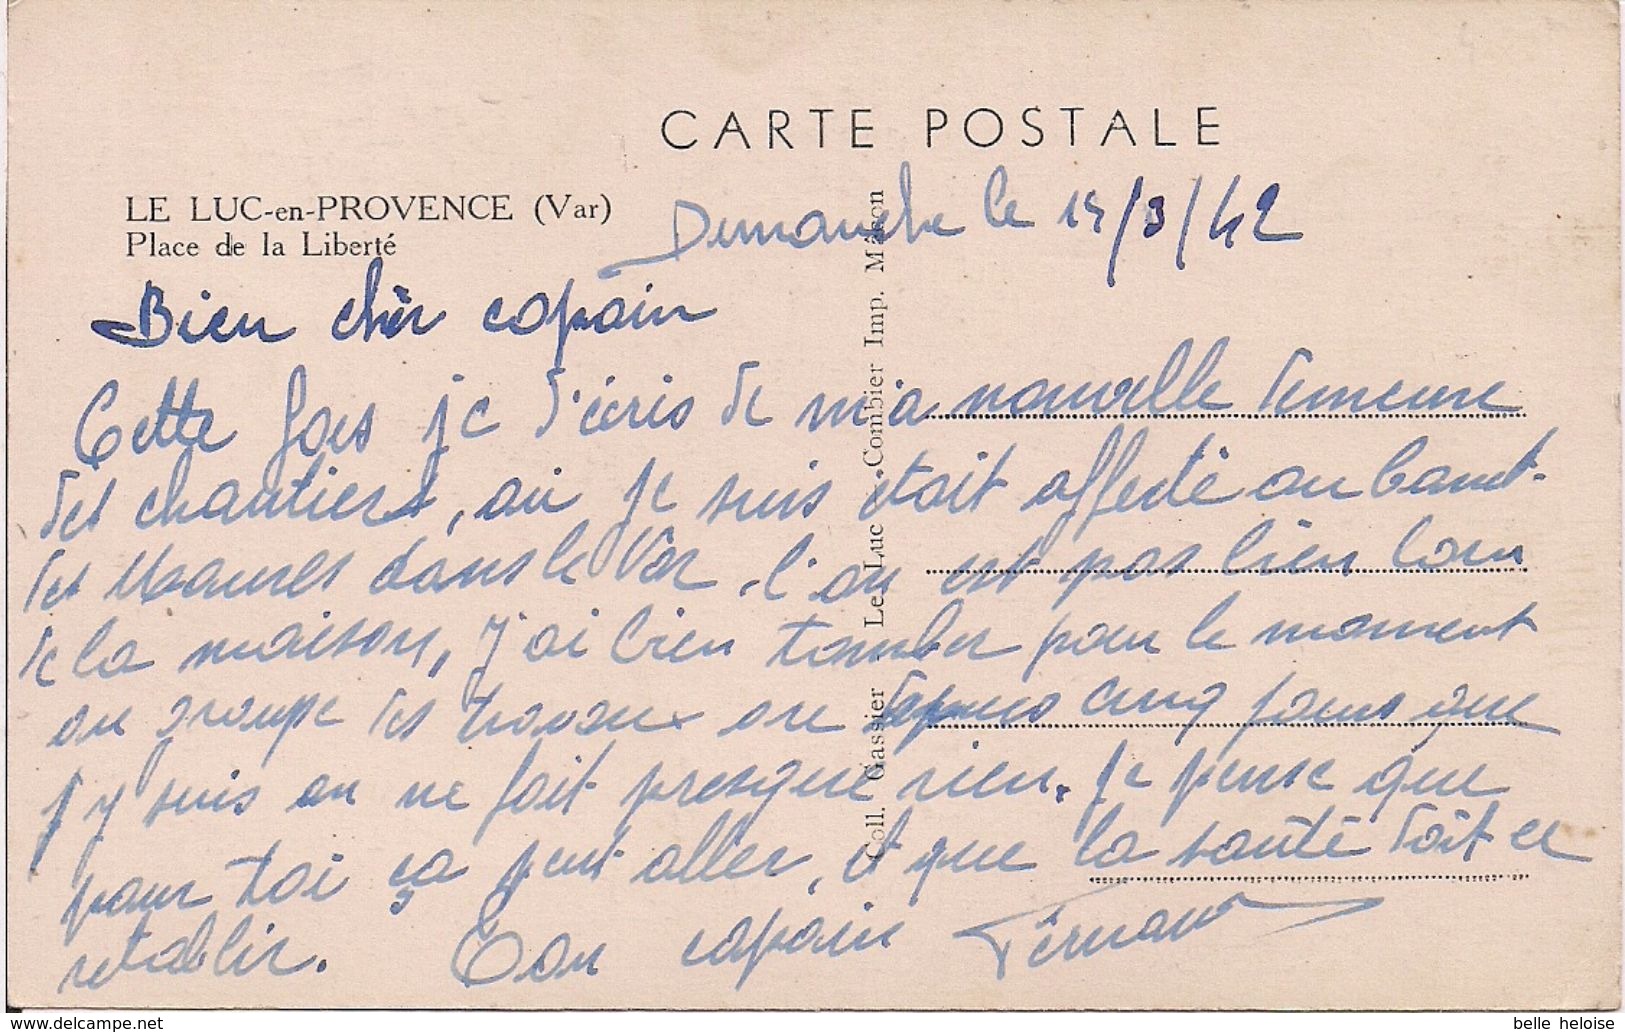 CARTE POSTALE
LE LUC-en-PROVENCE (Var)
Place de la Liberté
Dimanche le 15/3/42
Bien chèr copain
Cette fois je t'écris de m'a nouvelle demeure
des chantiers, ou je suis était affecté au
des Maures dans le Var. l'on est pas bien loin
de la maison, j'ai bien tomber pour le moment
au groupe des travaux ou depuis cinq jours que
j'y suis on ne fait presque rien. Je pense que
pour toi ça peut aller, et que la santé doit ce
retablir. Ton copain Fernand
Coll. Gassier Le Luc. Combier Imp. Mâcon
belle heloise